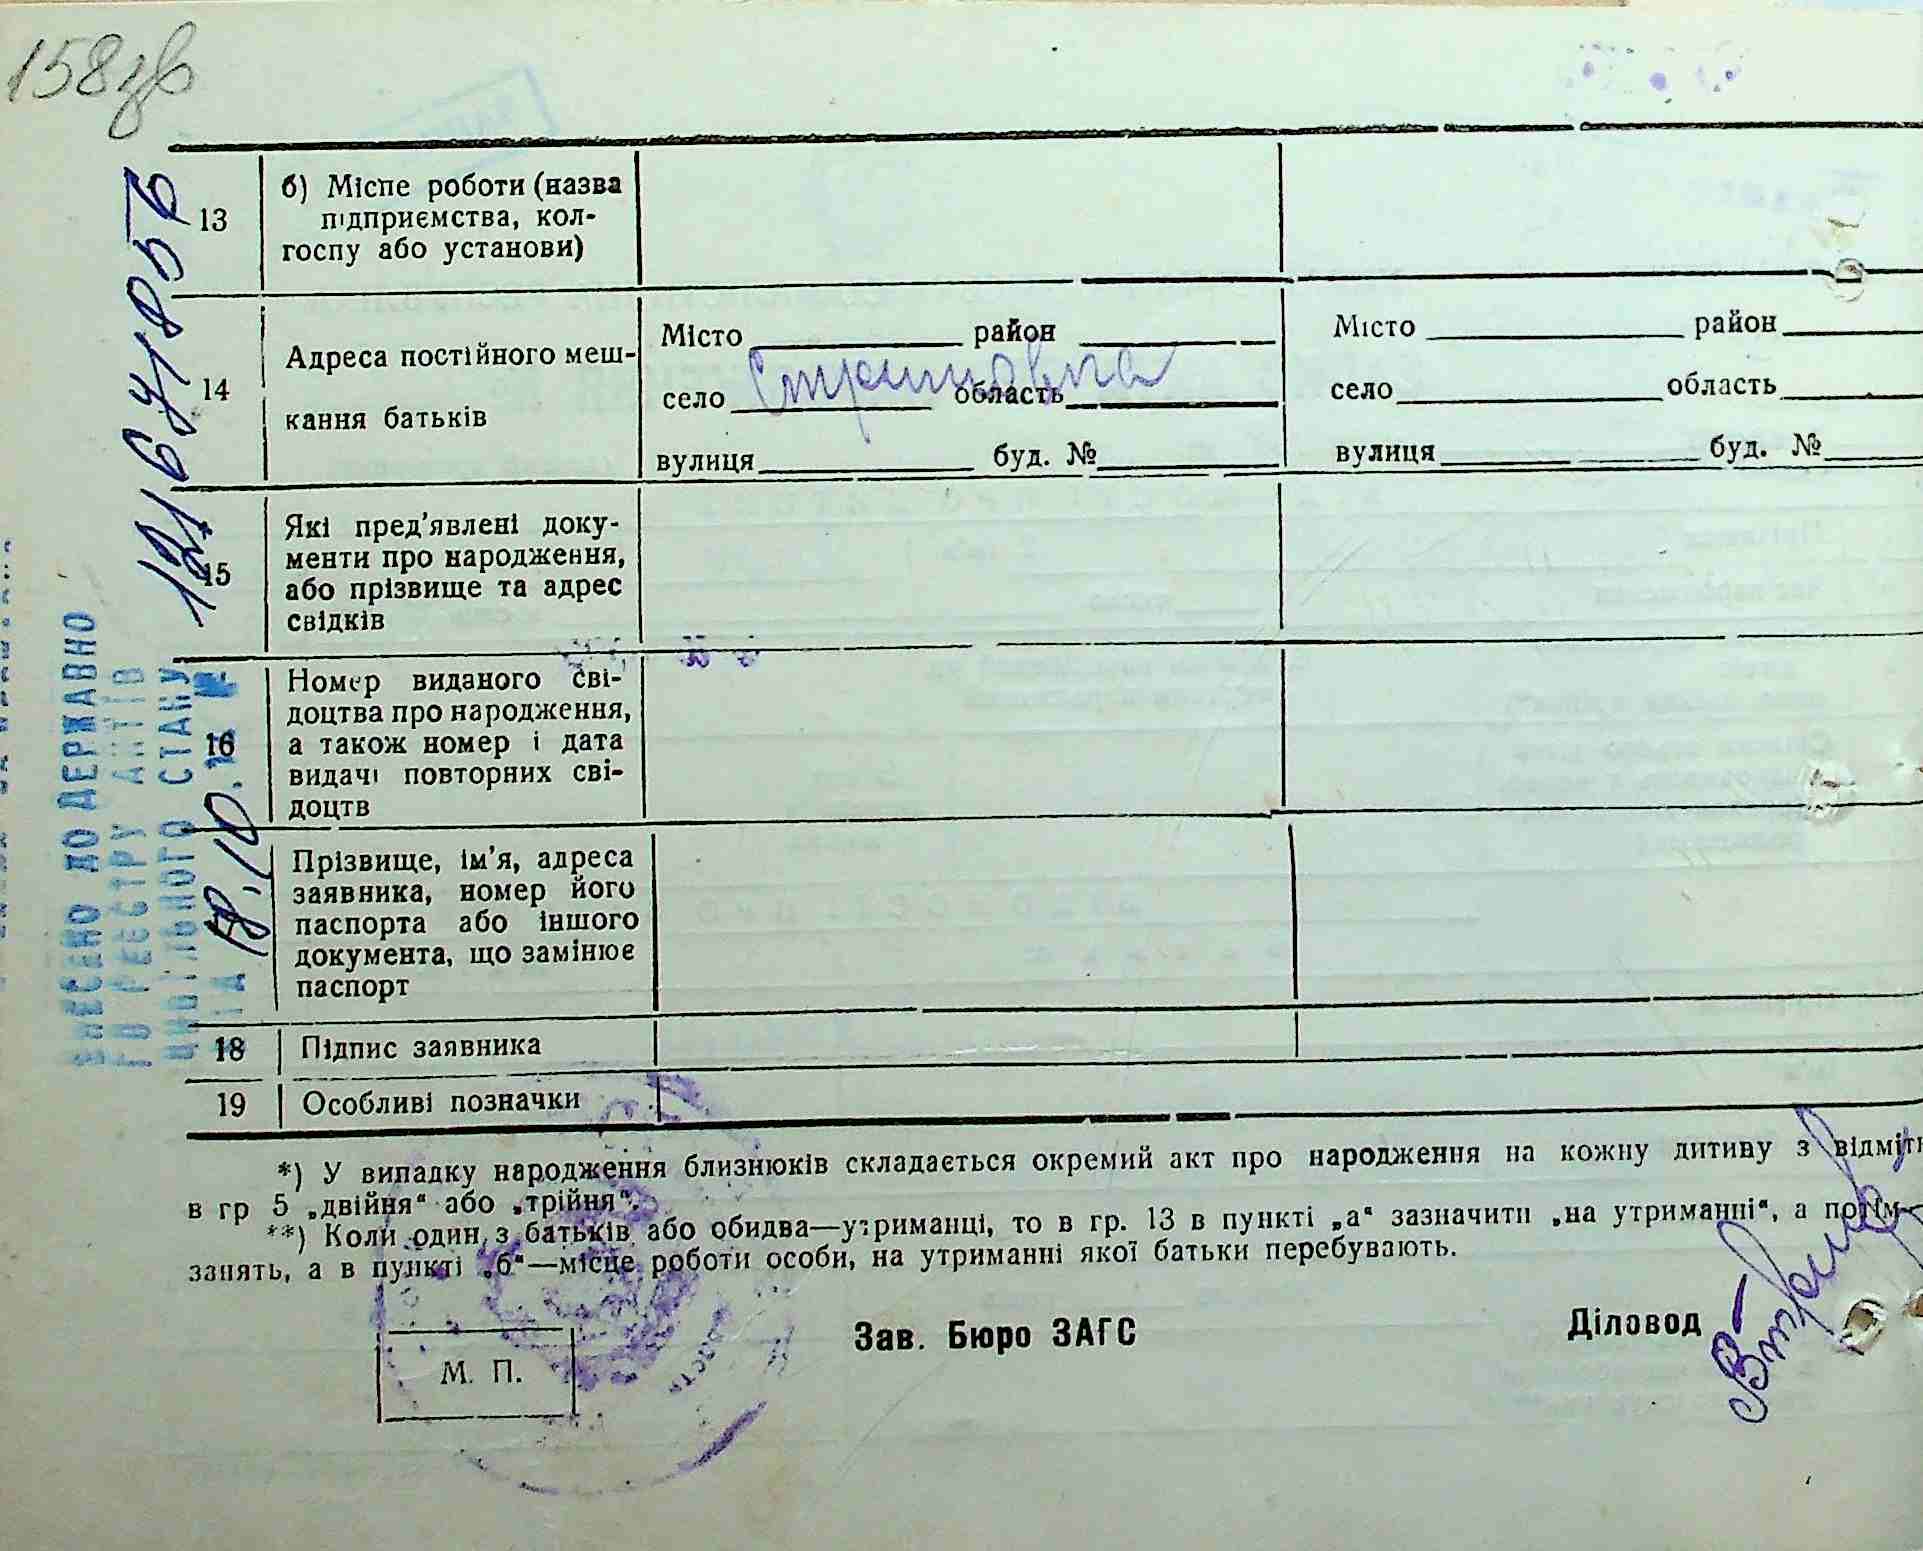 158зв
13
б) Місце роботи (назва
підприємства, кол-
госпу або установи)
14
Адреса постійного меш-
кання батьків
Місто район
село область
вулиця буд. №
Місто район
село область
вулиця буд. №
15
Які пред'явлені доку-
менти про народження,
або прізвище та адрес
свідків
16
Номер виданого сві-
доцтва про народження,
а також номер і дата
видачі повторних сві-
доцтв
Прізвище, ім'я, адреса
заявника, номер його
паспорта або іншого
документа, що замінює
паспорт
18 Підпис заявника
19 Особливі позначки
*) У випадку народження близнюків складається окремий акт про народження на кожну дитину з відміт
в гр 5 „двійня“ або „трійня“.
**) Коли один з батьків або обидва—утриманці, то в гр. 13 в пункті „а“ зазначити „на утриманні“, а
занять, а в пункті „б“—місце роботи особи, на утриманні якої батьки перебувають.
М. П.
Зав. Бюро ЗАГС
Діловод
ВНЕСЕНО ДО ДЕРЖАВНО
ГО РЕЄСТРУ АКТІВ
ЦИВІЛЬНОГО СТАНУ
18.10.